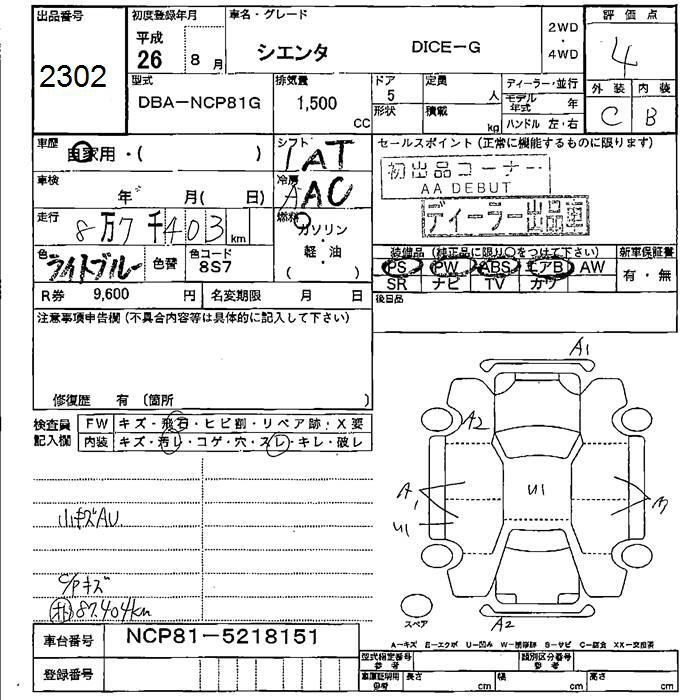 出品番号
2302
初度登録年月
平成
26 8 月
車名・グレード
シエンタ DICE-G
2WD
・
4WD
評価点
4
外装 内装
C B
型式
DBA-NCP81G
排気量
1,500
CC
ドア
5
定員
人
形状
積載
kg
ディーラー・並行
モデル年式 年
ハンドル 左・右
車歴
自家用・( )
シフト
IAT
車検
年 月( 日)
冷房
AAC
走行
8万7千403km
燃料
ガソリン
・
軽・油
( )
色
ライトブルー
色替
色コード
8S7
R券 9,600 円
名変期限 月 日
セールスポイント(正常に機能するものに限ります)
初出品コーナー
AA DEBUT
ディーラー出品車
装備品(純正品に限り○をつけて下さい)
PS PW ABS エアB AW
SR ナビ TV カワ
新車保証書
有・無
後日品
注意事項申告欄(不具合内容等は具体的に記入して下さい)
修復歴 有〔箇所 〕
検査員
記入欄
FW キズ・飛石・ヒビ割・リペア跡・X要
内装 キズ・汚レ・コゲ・穴・スレ・キレ・破レ
小キズAU
C/Pキズ
87.404km
A1
A2
A1
U1
U1
A2
スペア
車台番号 NCP81-5218151
登録番号
A-キズ E-エクボ U-凹み W-補修跡 S-サビ C-腐食 XX-交換済
型式指定番号
参考
類別区分番号
参考
車庫証明用
参考
長さ cm
幅 cm
高さ cm